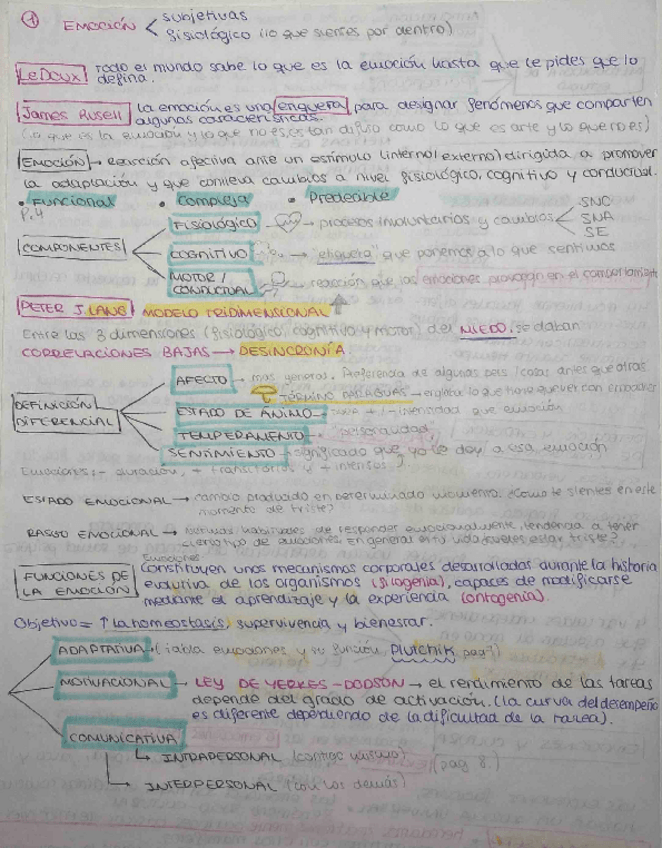 ① EMOCIÓN < subjetivas
fisiológico (lo que sientes por dentro)
LeDoux Todo el mundo sabe lo que es la emoción hasta que le pides que lo
defina.
James Rusell la emoción es una etiqueta para designar fenómenos que comparten
algunas características.
(lo que es la emoción y lo que no es, es tan difuso como lo que es arte y lo que no es)
EMOCIÓN → Reacción afectiva ante un estímulo (interno/externo) dirigida a promover
la adaptación y que conlleva cambios a nivel fisiológico, cognitivo y conductual.
• Funcional • Compleja • Predecible
P.4
COMPONENTES
FISIOLÓGICO → procesos involuntarios y cambios < SNC
SNA
SE
COGNITIVO → "etiqueta" que ponemos a lo que sentimos
MOTOR / CONDUCTUAL → reacción que las emociones provocan en el comportamiento
PETER J. LANG MODELO TRIDIMENSIONAL
Entre las 3 dimensiones (fisiológico, cognitivo y motor) del MIEDO, se daban
CORRELACIONES BAJAS → DESINCRONÍA.
DEFINICIÓN DIFERENCIAL
AFECTO → más general. Preferencia de algunas pers/cosas antes que otras
TÉRMINO PARAGUAS → engloba lo que tiene que ver con emociones
ESTADO DE ÁNIMO → dura + / - intensidad que emoción
TEMPERAMENTO → "personalidad"
SENTIMIENTO → significado que yo le doy a esa emoción
Emociones: - duración, + transitorios y + intensos
ESTADO EMOCIONAL → cambio producido en determinado momento. ¿Como te sientes en este
momento de triste?
RASGO EMOCIONAL → formas habituales de responder emocionalmente, tendencia a tener
cierto tipo de emociones en general en tu vida ¿sueles estar triste?
FUNCIONES DE LA EMOCIÓN
Emociones
Constituyen unos mecanismos corporales desarrollados durante la historia
evolutiva de los organismos (filogenia), capaces de modificarse
mediante el aprendizaje y la experiencia (ontogenia).
Objetivo = ↑ la homeostasis, supervivencia y bienestar.
ADAPTATIVA → (tabla emociones y su función, Plutchik, pag 7)
MOTIVACIONAL → LEY DE YERKES-DODSON → el rendimiento de las tareas
depende del grado de activación. (La curva del desempeño
es diferente dependiendo de la dificultad de la tarea).
COMUNICATIVA
↳ INTRAPERSONAL (contigo mismo) (pag 8.)
↳ INTERPERSONAL (con los demás)